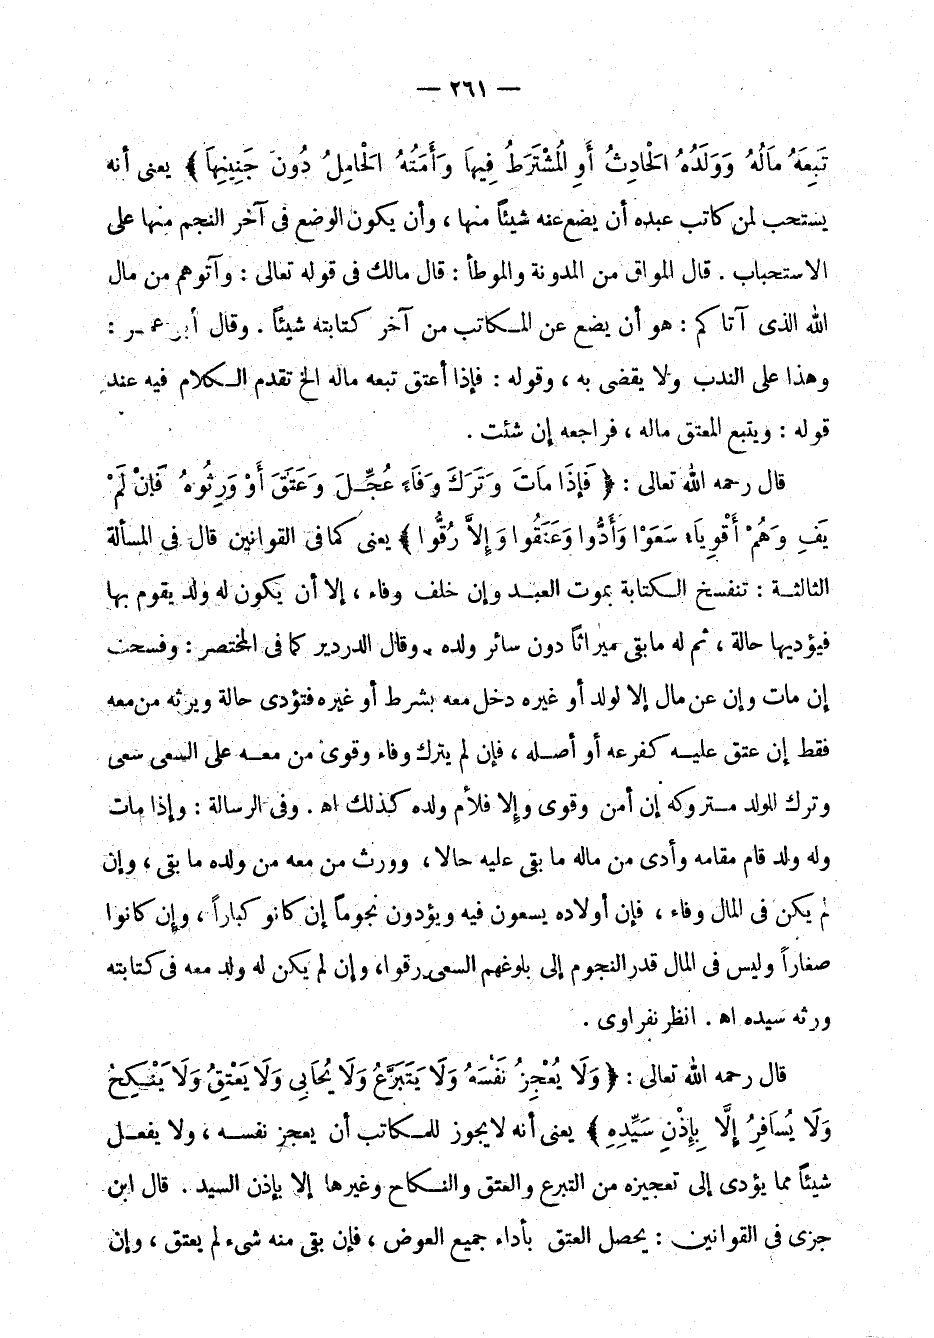 — ٢٦١ —
تَبِعَهُ مَالُهُ وَوَلَدُهُ الْحَادِثُ أَوِ الْمُشْتَرَطُ فِيهَا وَأَمَتُهُ الْحَامِلُ دُونَ جَنِينِهَا ﴾ يعنى أنه
يستحب لمن كاتب عبده أن يضع عنه شيئاً منها ، وأن يكون الوضع فى آخر النجم منها على
الاستحباب . قال المواق من المدونة والموطأ : قال مالك فى قوله تعالى : وآتوهم من مال
الله الذى آتاكم : هو أن يضع عن المكاتب من آخر كتابته شيئاً . وقال أبو عمر :
وهذا على الندب ولا يقضى به ، وقوله : فإذا أعتق تبعه ماله الخ تقدم الكلام فيه عند
قوله : ويتبع المعتق ماله ، فراجعه إن شئت .
قال رحمه الله تعالى : ﴿ فَإِذَا مَاتَ وَتَرَكَ وَفَاءً عُجِّلَ وَعَتَقَ أَوْ وَرِثُوهُ فَإِنْ لَمْ
يَفِ وَهُمْ أَقْوِيَاءُ سَعَوْا وَأَدُّوا وَعَتَقُوا وَإِلاَّ رُقُّوا ﴾ يعنى كما فى القوانين قال فى المسألة
الثالثة : تنفسخ الكتابة بموت العبد وإن خلف وفاء ، إلا أن يكون له ولد يقوم بها
فيؤديها حالة ، ثم له مابقى ميراثاً دون سائر ولده . وقال الدردير كما فى المختصر : وفسخت
إن مات وإن عن مال إلا لولد أو غيره دخل معه بشرط أو غيره فتؤدى حالة ويرثه من معه
فقط إن عتق عليه كفرعه أو أصله ، فإن لم يترك وفاء وقوى من معه على السعى سعى
وترك للولد متروكه إن أمن وقوى وإلا فلأم ولده كذلك اه . وفى الرسالة : وإذا مات
وله ولد قام مقامه وأدى من ماله ما بقى عليه حالا ، وورث من معه من ولده ما بقى ، وإن
لم يكن فى المال وفاء ، فإن أولاده يسعون فيه ويؤدون نجوماً إن كانو كباراً ، وإن كانوا
صغاراً وليس فى المال قدر النجوم إلى بلوغهم السعى رقوا ، وإن لم يكن له ولد معه فى كتابته
ورثه سيده اه . انظر نفراوى .
قال رحمه الله تعالى : ﴿ وَلَا يُعْجِزُ نَفْسَهُ وَلَا يَتَبَرَّعُ وَلَا يُحَابِى وَلَا يَعْتِقُ وَلَا يَنْكِحُ
وَلَا يُسَافِرُ إِلَّا بِإِذْنِ سَيِّدِهِ ﴾ يعنى أنه لا يجوز للمكاتب أن يعجز نفسه ، ولا يفعل
شيئاً مما يؤدى إلى تعجيزه من التبرع والعتق والنكاح وغيرها إلا بإذن السيد . قال ابن
جزى فى القوانين : يحصل العتق بأداء جميع العوض ، فإن بقى منه شىء لم يعتق ، وإن